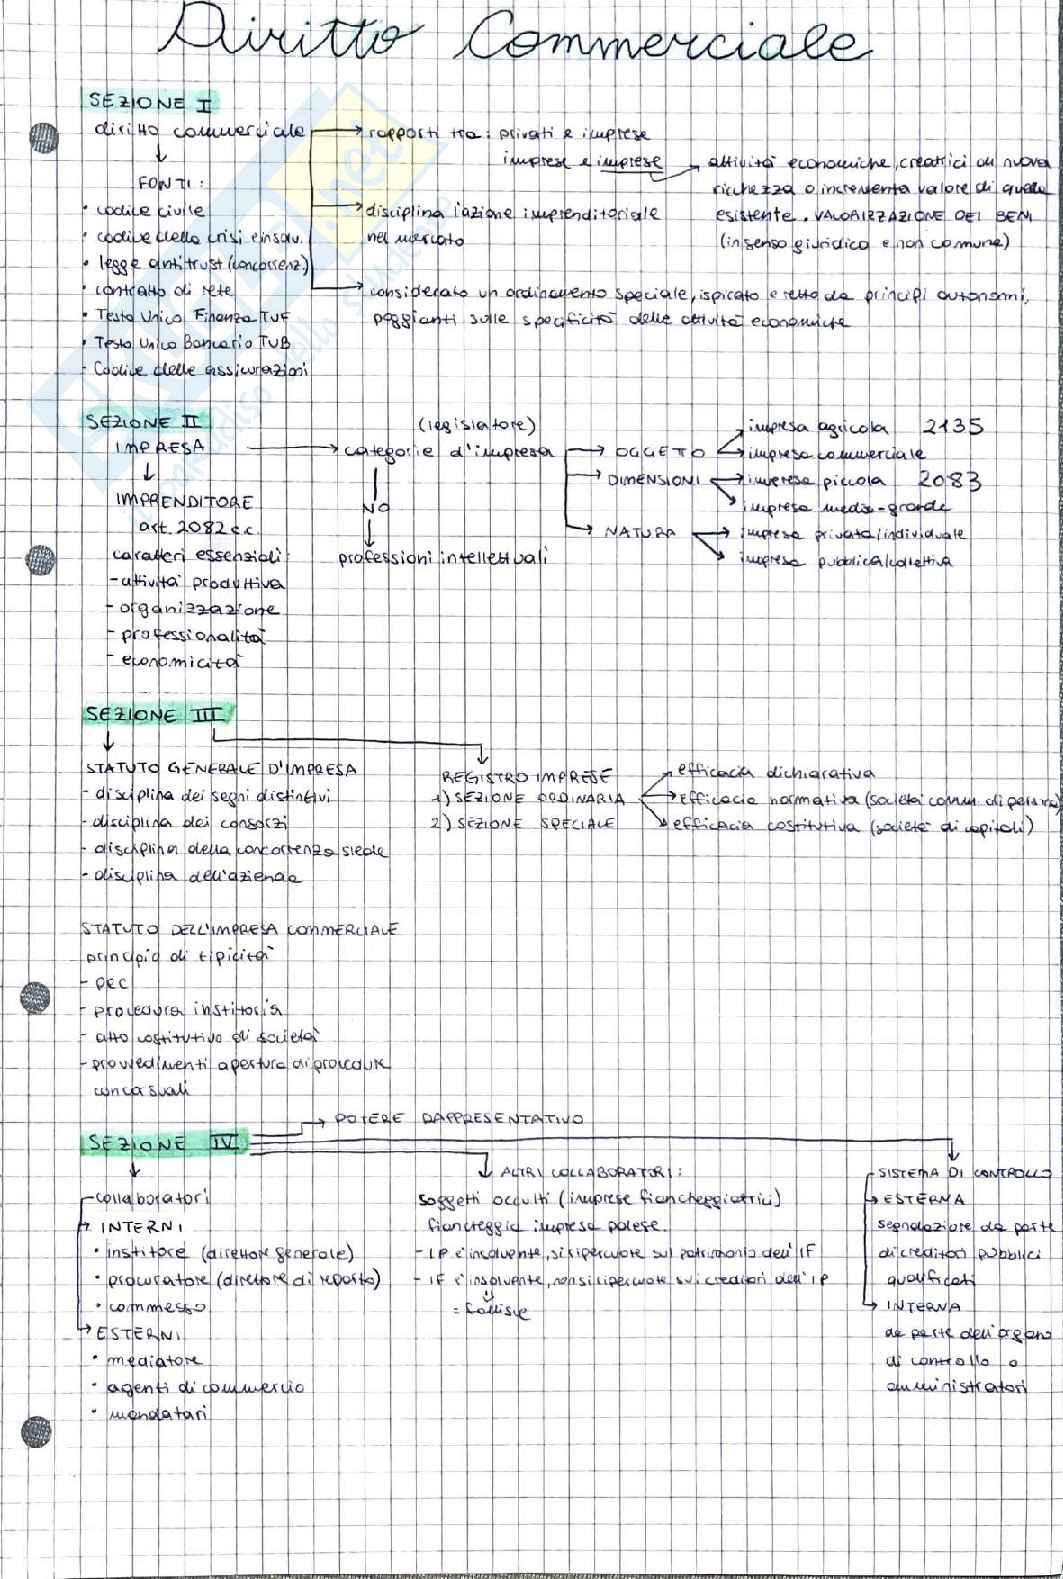 Diritto Commerciale
SEZIONE I
diritto commerciale → rapporti tra: privati e imprese
imprese e imprese → attività economiche, creatrici di nuova
ricchezza o incrementa valore di quella
esistente. VALORIZZAZIONE DEI BENI
(in senso giuridico e non comune)
→ disciplina l'azione imprenditoriale
nel mercato
→ considerato un ordinamento speciale, ispirato e retto da principi autonomi,
poggianti sulle specificità delle attività economiche
↓
FONTI:
• codice civile
• codice della crisi e insolv.
• legge antitrust (concorrenz.)
• contratto di rete
• Testo Unico Finanza TUF
• Testo Unico Bancario TUB
- Codice delle assicurazioni
SEZIONE II
IMPRESA → categorie d'impresa
(legislatore)
→ OGGETO → impresa agricola 2135
→ impresa commerciale
→ DIMENSIONI → impresa piccola 2083
impresa medio-grande
→ NATURA → impresa privata/individuale
impresa pubblica/collettiva
NO
professioni intellettuali
↓
IMPRENDITORE
art. 2082 c.c.
caratteri essenziali
- attività produttiva
- organizzazione
- professionalità
- economicità
SEZIONE III
STATUTO GENERALE D'IMPRESA
- disciplina dei segni distintivi
- disciplina dei consorzi
- disciplina della concorrenza sleale
- disciplina dell'azienda
REGISTRO IMPRESE
1) SEZIONE ORDINARIA
2) SEZIONE SPECIALE
efficacia dichiarativa
efficacia normativa (società comm. di persone)
efficacia costitutiva (società di capitali)
STATUTO DELL'IMPRESA COMMERCIALE
principio di tipicità
- PEC
- procedura institoria
- atto costitutivo di società
- provvedimenti apertura di procedure
concorsuali
SEZIONE IV
→ POTERE RAPPRESENTATIVO
collaboratori
→ INTERNI
• institore (direttore generale)
• procuratore (direttore di reparto)
• commesso
→ ESTERNI
• mediatore
• agenti di commercio
• mandatari
ALTRI COLLABORATORI:
soggetti occulti (imprese fiancheggiatrici)
fiancheggia impresa palese.
- IP è insolvente, si ripercuote sul patrimonio dell'IF
- IF è insolvente, non si ripercuote sui creditori dell'IP
= fallisce
SISTEMA DI CONTROLLO
→ ESTERNA
segnalazione da parte
di creditori pubblici
qualificati
→ INTERNA
da parte dell'organo
di controllo o
amministratori